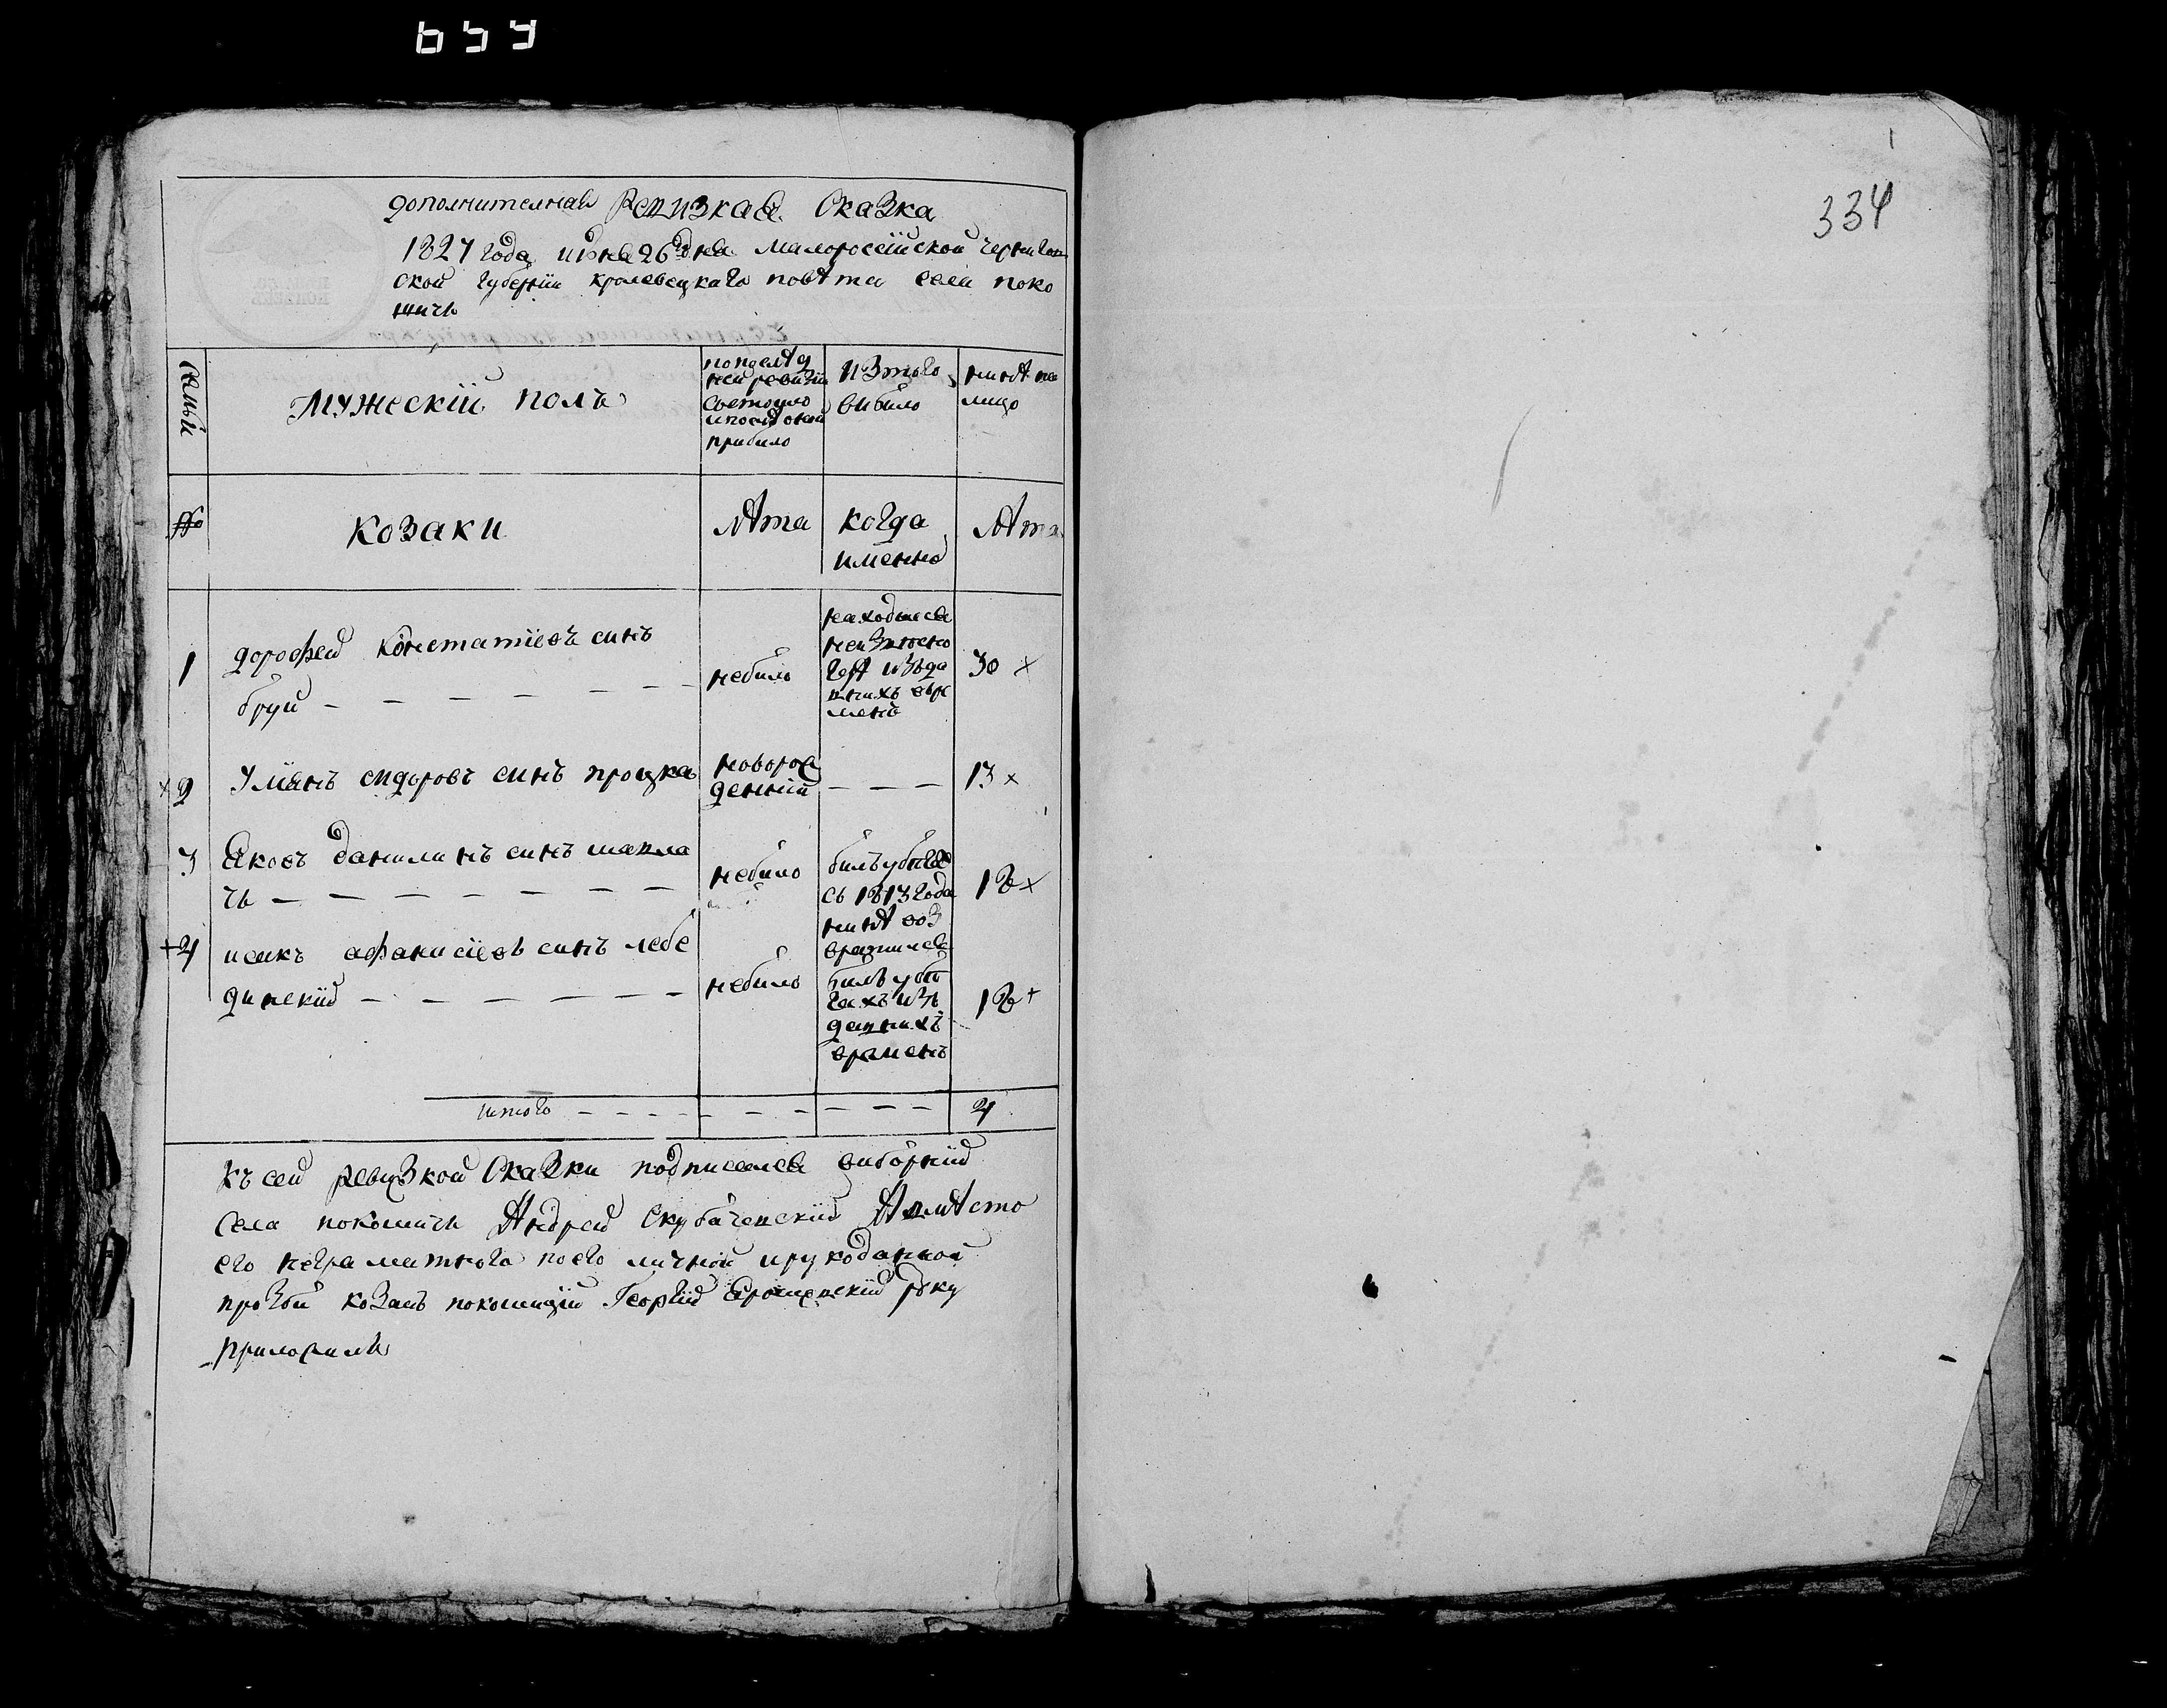 659
334
дополнителная Ревизкая Сказка
1827 года июня 26 дня малоросѣйской чернигов
ской губерніи кролевецкаго повѣта села поко
шичъ
Семьи
Мужескій полъ
по послѣд
ней ревизіи
состояло
и послѣ оной
прибило
изтого
вибило
нинѣ на
лицо
№
козаки
лѣта
когда
именно
лѣта
1
дорофей констатіевъ синъ
бруй
небило
находился
неизвѣсно
гдѣ изъда
внихъ вре
менъ
30 x
x 2
Уліянъ сидоровъ синъ процка
новорож
денній
13 x
3
Яковъ данилинъ синъ шапла
чъ
небило
билъ убѣгах
съ 1813 года
нинѣ воз
вратился
18 x
+ 4
исакъ афанасіевъ синъ лебе
динскій
небило
билъ убѣ
гахъ изъ
давнихъ
временъ
18 +
итого
4
къ сей ревизкой Сказки подписался виборній
села покошичъ Андрей Скубаченскій Авмѣсто
его неграматного по его личной ирукоданной
прозбѣ козакъ покошицкій Георгій Ярошевскій руку
приложилъ